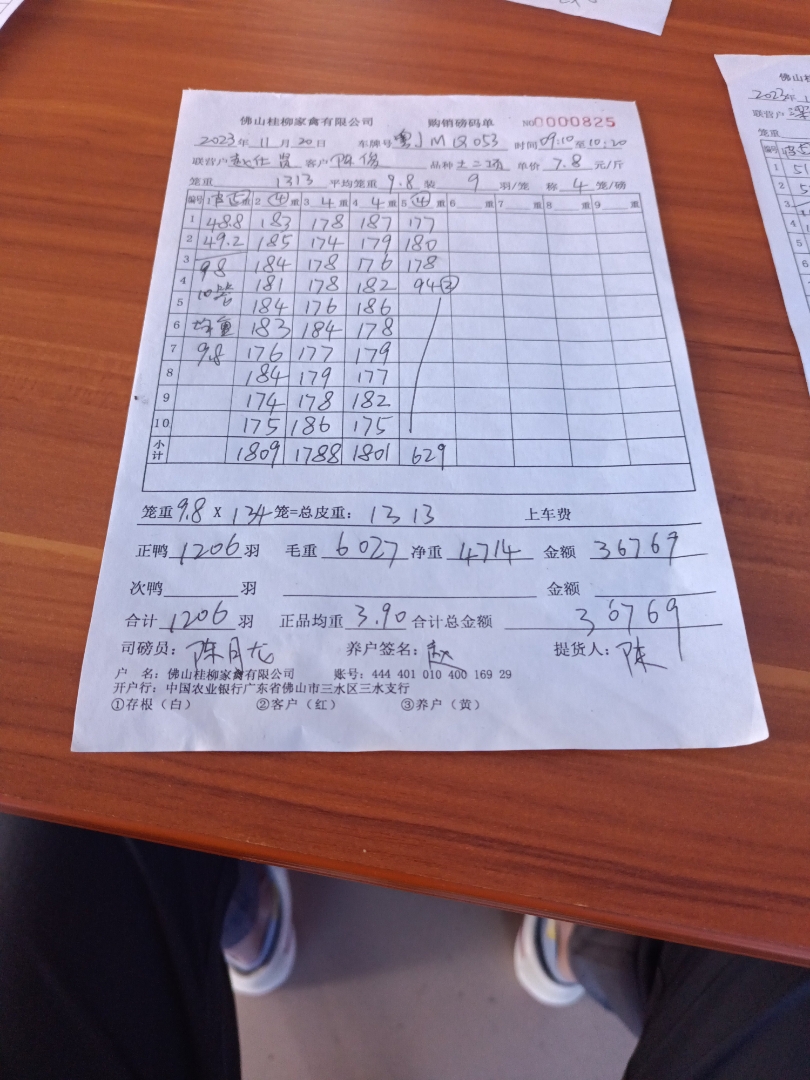 佛山桂柳家禽有限公司 购销磅码单 NO0000825
2023年 11月 20日 车牌号 粤J M Q 053 时间 09:10至10:20
联营户 赵仕贤 客户 陈 品种 土二 单价 7.8 元/斤
笼重 1313 平均笼重 9.8 装 9 羽/笼 称 4 笼/磅
编号 1 重 2 ④ 重 3 4 重 4 4 重 5 ④ 重 6 重 7 重 8 重 9 重
1 48.8 183 178 187 177
2 49.2 185 174 179 180
3 98 184 178 176 178
4 10 181 178 182 94②
5 184 176 186
6 均重 183 184 178
7 9.8 176 177 179
8 184 179 177
9 174 178 182
10 175 186 175
小计 1809 1788 1801 629
笼重 9.8 X 134 笼=总皮重: 1313 上车费
正鸭 1206 羽 毛重 6027 净重 4714 金额 36769
次鸭 羽 金额
合计 1206 羽 正品均重 3.90 合计总金额 36769
司磅员: 陈月龙 养户签名: 赵 提货人: 陈
户 名: 佛山桂柳家禽有限公司 账号: 444 401 010 400 169 29
开户行: 中国农业银行广东省佛山市三水区三水支行
①存根（白） ②客户（红） ③养户（黄）
佛山桂
2023年 1
联营户 梁
笼重
编号
1 51
2 5
3
4
5
6